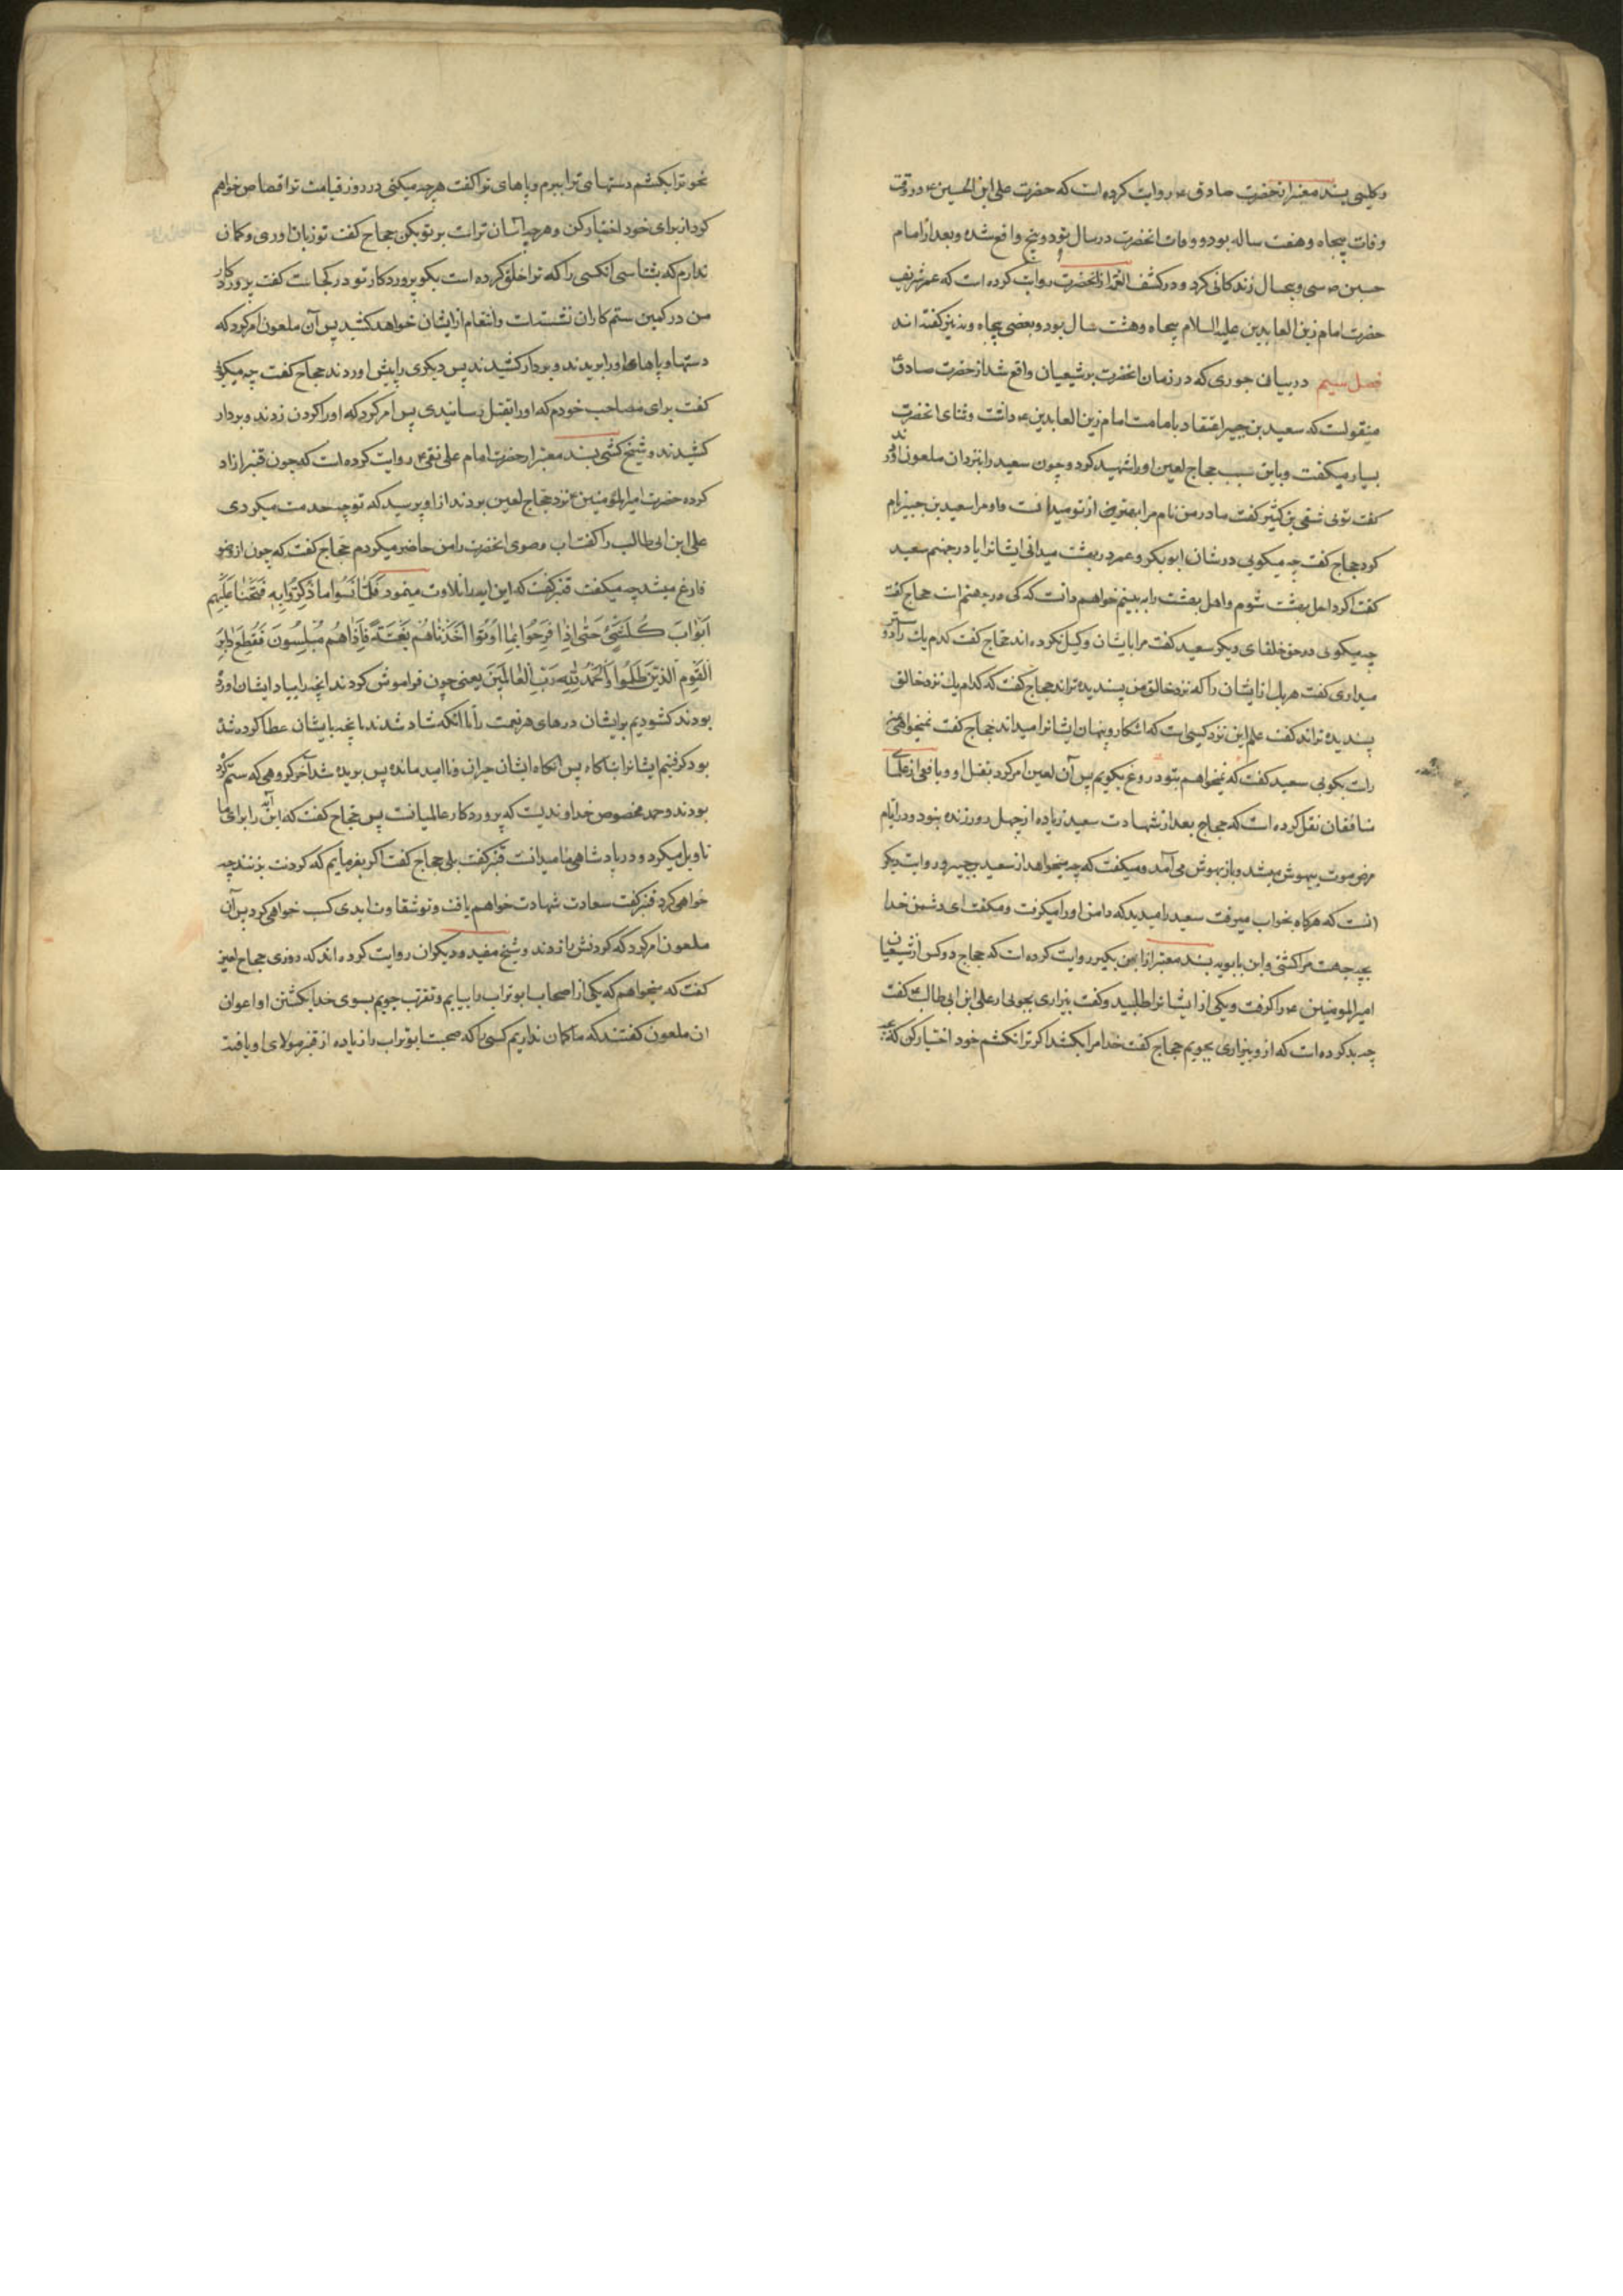 وکلینی بسند معتبر از حضرت صادق ع روایت کرده است که حضرت علی ابن الحسین ع در وقت
وفات پنجاه و هفت ساله بود و وفات انحضرت در سال نود و پنج واقع شده و بعد از امام
حسین ع سی و پنجسال زندکانی کرد و در کشف الغمه از انحضرت روایت کرده است که عمر شریف
حضرت امام زین العابدین علیه السلام پنجاه و هشت سال بود و بعضی پنجاه و نه نیز کفته اند
فصل سیم در بیان جوری که در زمان انحضرت بر شیعیان واقع شد از حضرت صادق ع
منقولست که سعید بن جبیر اعتقاد بامامت امام زین العابدین ع داشت و ثنای انحضرت
بسیار میکفت و باین سبب حجاج لعین او را شهید کرد و چون سعید را بنزد ان ملعون اوردند
کفت توئی شقی بن کثیر کفت مادر من نام مرا بهتر از تو میدانست و او مرا سعید بن جبیر نام
کرد حجاج کفت چه میکویی در شان ابوبکر و عمر در بهشت میدانی ایشانرا یا در جهنم سعید
کفت اکر داخل بهشت شوم و اهل بهشت را ببینم خواهم دانست که کی در جهنم است حجاج کفت
چه میکوی در حق خلفای دیکر سعید کفت مرا بایشان وکیل نکرده اند حجاج کفت کدام یك را دوستر
میداری کفت هر یك از ایشان را که نزد خالق من پسندیده تراند حجاج کفت که کدام یك نزد خالق
پسندیده تراند کفت علم این نزد کیسی است که اشکار و پنهان ایشانرا میداند حجاج کفت نمیخواهی
راست بکویی سعید کفت که نمیخواهم بتو دروغ بکویم پس آن لعین امر کرد بقتل او و یافعی از علمای
شافعیان نقل کرده است که حجاج بعد از شهادت سعید زیاده از چهل روز زنده نبود و در ایام
مرض موت بیهوش میشد و باز بهوش می آمد و میکفت که چه میخواهد از سعید بن جبیر و روایت دیکر
انست که هرکاه بخواب میرفت سعید را میدید که دامن او را میکرفت و میکفت ای دشمن خدا
بچه جهت مرا کشتی و ابن بابویه بسند معتبر از ابن بکیر روایت کرده است که حجاج دو کس از شیعیان
امیر المومنین ع را کرفت و یکی از ایشانرا طلبید و کفت بیزاری بجوی از علی ابن ابی طالب ع کفت
چه بد کرده است که از و بیزاری بجویم حجاج کفت خدا مرا بکشد اکر ترا نکشم خود اختیار کن که بچه
نحو ترا بکشم دستهای ترا ببرم و پاهای ترا کفت هرچه میکنی در روز قیامت ترا قصاص خواهم
کرد از برای خود اختیار کن و هرچه آسان تر است بر تو بکن حجاج کفت تو زبان اوری و کمان
ندارم که بشناسی انکسی را که ترا خلق کرده است بکو پروردکار تو در کجاست کفت پروردکار
من در کمین ستم کاران نشسته است و انتقام از ایشان خواهد کشید پس آن ملعون امر کرد که
دستها و پاهای او را بریدند و بر دار کشیدند پس دیکری را پیش اوردند حجاج کفت چه میکوئی
کفت برای مصاحب خودم که او را بقتل رسانیدی پس امر کرد که او را کردن زدند و بر دار
کشیدند و شیخ کشی بسند معتبر از حضرت امام علی نقی ع روایت کرده است که چون قنبر ازاد
کرده حضرت امیر المؤمنین ع نزد حجاج لعین بردند از او پرسید که تو چه خدمت میکردی
علی ابن ابی طالب را کفت اب وضوی انحضرت را من حاضر میکردم حجاج کفت که چون از وضو
فارغ میشد چه میکفت قنبر کفت که این ایه را تلاوت مینمود فَلَمّا نَسُوا ما ذُکِّرُوا بِهِ فَتَحْنا عَلَیْهِم
اَبْوابَ کُلِّ شَیْءٍ حَتّی اِذا فَرِحُوا بِما اُوتُوا اَخَذْناهُمْ بَغْتَةً فَاِذا هُمْ مُبْلِسُونَ فَقُطِعَ دابِرُ
الْقَوْمِ الَّذِینَ ظَلَمُوا وَالْحَمْدُ لِلّٰهِ رَبِّ الْعالَمِینَ یعنی چون فراموش کردند انچه را بیاد ایشان اورده
بودند کشودیم بر ایشان درهای هر نعمت را تا انکه شاد شدند بانچه بایشان عطا کرده شده
بود کرفتیم ایشانرا بناکاه پس انکاه ایشان حیران و نا امید مانده پس بریده شد آخر کروهی که ستم کرده
بودند و حمد مخصوص خداوندیست که پروردکار عالمیانست پس حجاج کفت که این آیه را برای ما
تاویل میکرد و در پادشاهی ما میدانست قنبر کفت بلی حجاج کفت اکر بفرمایم که کردنت بزنند چه
خواهی کرد قنبر کفت سعادت شهادت خواهم یافت و تو شقاوت ابدی کسب خواهی کرد پس آن
ملعون امر کرد که کردنش را زدند و شیخ مفید و دیکران روایت کرده اند که روزی حجاج لعین
کفت که میخواهم که یکی از اصحاب ابو تراب را بیابم و تقرب جویم بسوی خدا بکشتن او اعوان
ان ملعون کفتند که ما کمان نداریم کسی را که صحبت ابو تراب را زیاده از قنبر مولای او یافته